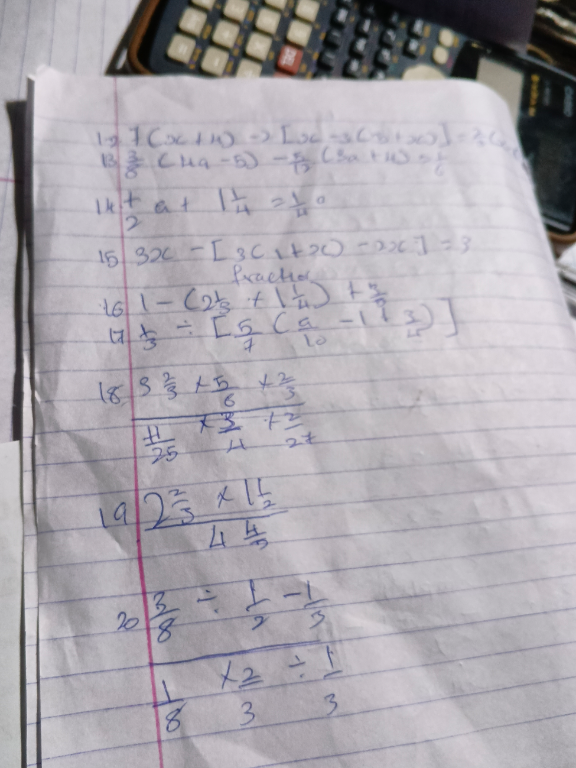 12 7(x+4) → [x-3(5+x)] =
13 3/8 (4a-5) - 5/12 (3a+4) = 1/6
14 1/2 a + 1 1/4 = 1/4
15 3x - [3(1+x) - 2x] = 3
Fraction
16 1 - (2 1/3 × 1 1/4) +
17 1/3 ÷ [5/7 (9/10 - 1 + 3/4)]
18 3 2/3 × 5/6 × 2/3
11/25 × 3/4 + 2/27
19 2 2/3 × 1 1/2
4 4/5
20 3/8 ÷ 1/2 - 1/3
1/8 × 2/3 ÷ 1/3